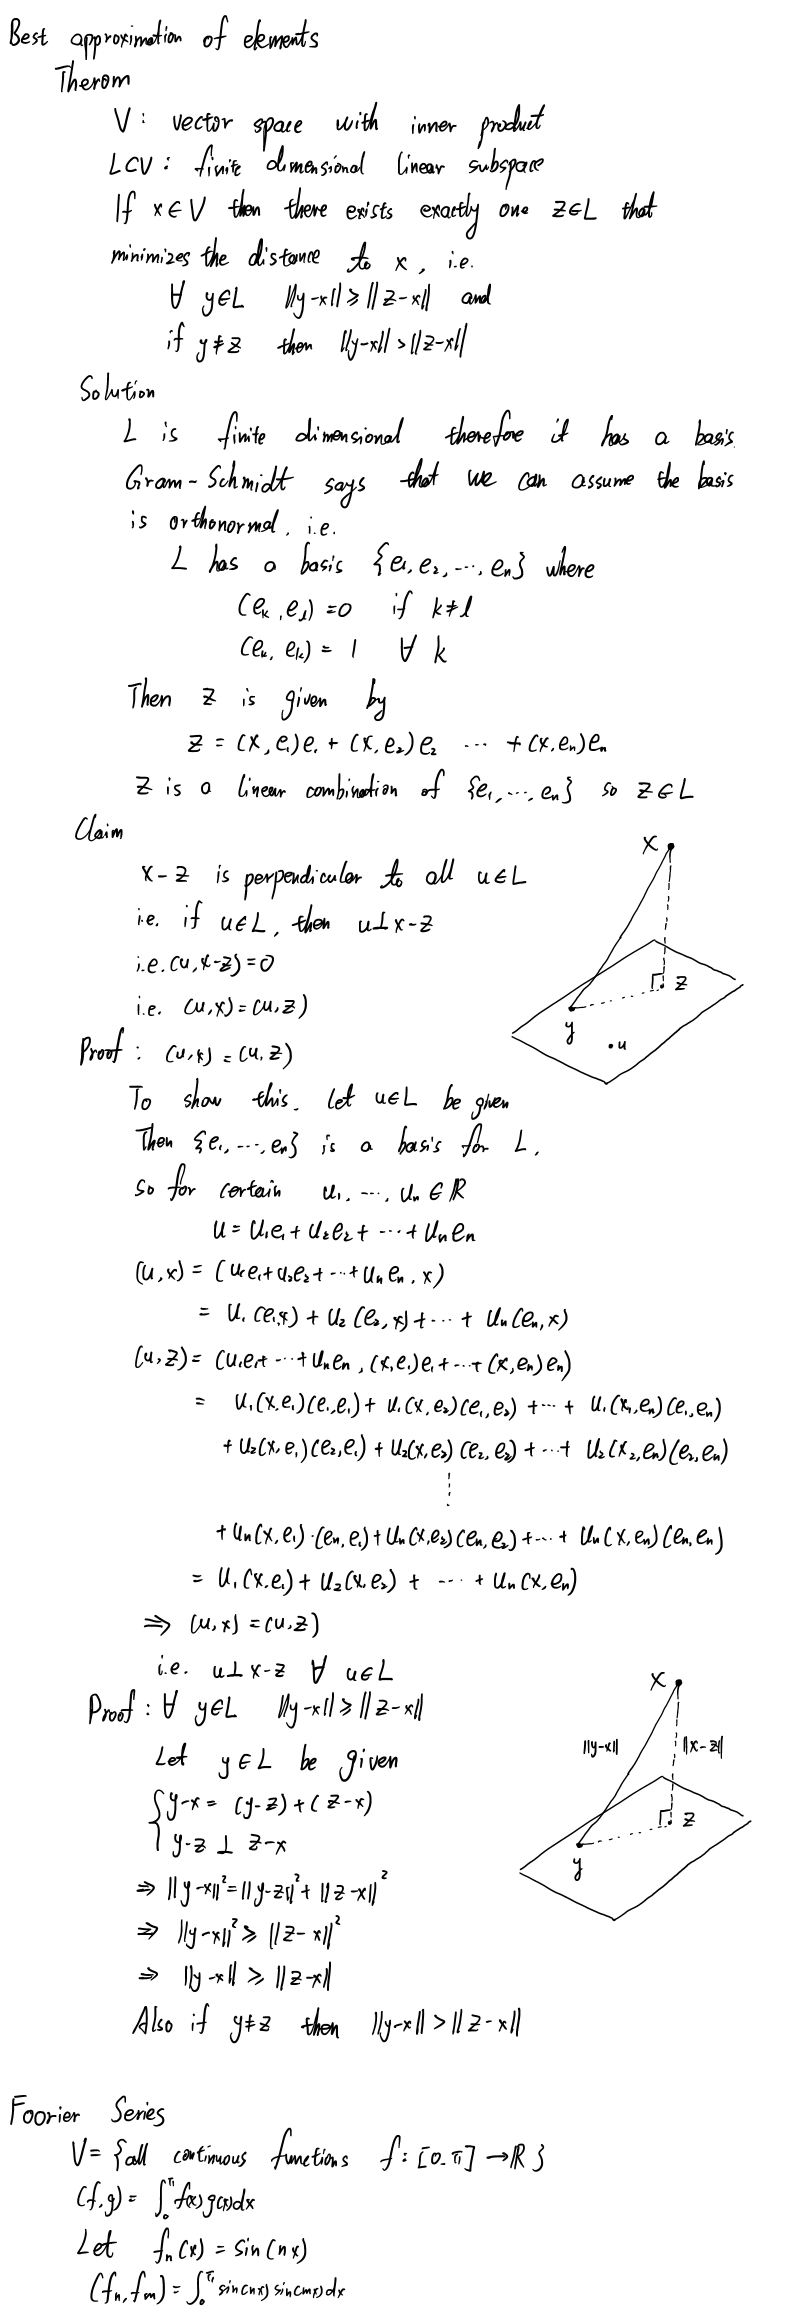 Best approximation of elements
Therom
V: vector space with inner product
L⊂V: finite dimensional linear subspace
If x∈V then there exists exactly one z∈L that
minimizes the distance to x, i.e.
∀ y∈L ||y-x||≥||z-x|| and
if y≠z then ||y-x||>||z-x||
Solution
L is finite dimensional therefore it has a basis.
Gram-Schmidt says that we can assume the basis
is orthonormal. i.e.
L has a basis {e₁, e₂, ..., eₙ} where
(eₖ, eₗ)=0 if k≠l
(eₖ, eₖ)= 1 ∀ k
Then z is given by
z = (x, e₁)e₁ + (x, e₂)e₂ ... + (x, eₙ)eₙ
z is a linear combination of {e₁, ..., eₙ} so z∈L
Claim
x-z is perpendicular to all u∈L
i.e. if u∈L, then u⊥x-z
i.e. (u, x-z)=0
i.e. (u,x)=(u,z)
x
z
y
u
Proof: (u,x)=(u,z)
To show this. let u∈L be given
Then {e₁, ..., eₙ} is a basis for L.
so for certain u₁, ..., uₙ∈ℝ
u=u₁e₁+u₂e₂+...+uₙeₙ
(u,x) = (u₁e₁+u₂e₂+...+uₙeₙ, x)
= u₁(e₁,x) + u₂(e₂,x)+...+ uₙ(eₙ,x)
(u,z)= (u₁e₁+...+uₙeₙ, (x,e₁)e₁+...+(x,eₙ)eₙ)
= u₁(x,e₁)(e₁,e₁)+ u₁(x,e₂)(e₁,e₂) +...+ u₁(x₁,eₙ)(e₁,eₙ)
+u₂(x,e₁)(e₂,e₁)+u₂(x,e₂)(e₂,e₂)+...+ u₂(x₂,eₙ)(e₂,eₙ)
⋮
+uₙ(x,e₁)·(eₙ,e₁)+uₙ(x,e₂)(eₙ,e₂)+...+ uₙ(x,eₙ)(eₙ,eₙ)
= u₁(x,e₁)+ u₂(x,e₂) + ... + uₙ(x,eₙ)
⇒ (u,x)=(u,z)
i.e. u⊥x-z ∀ u∈L
Proof: ∀ y∈L ||y-x||≥||z-x||
Let y∈L be given
{y-x = (y-z)+(z-x)
y-z ⊥ z-x
⇒ ||y-x||²=||y-z||²+||z-x||²
⇒ ||y-x||²≥||z-x||²
⇒ ||y-x||≥||z-x||
Also if y≠z then ||y-x||>||z-x||
x
||y-x||
||x-z||
z
y
Foorier Series
V={all continuous functions f:[0,π]→ℝ}
(f,g)=∫₀^π f(x)g(x)dx
Let fₙ(x) = sin(nx)
(fₙ,fₘ)=∫₀^π sin(nx)sin(mx)dx